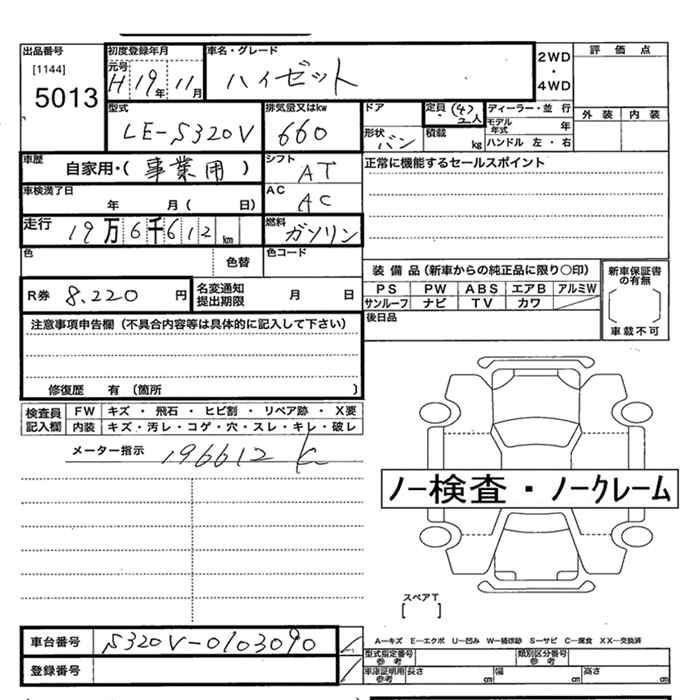 出品番号
[1144]
5013
初度登録年月
元号
H 19年 11月
車名・グレード
ハイゼット
2WD
・
4WD
評価点
外装 内装
型式
LE-S320V
排気量又はkw
660
ドア
形状
バン
定員 (4)
2人
積載 kg
ディーラー・並行
モデル年式 年
ハンドル 左・右
車歴
自家用・( 事業用 )
シフト
AT
正常に機能するセールスポイント
車検満了日
年 月( 日)
AC
AC
走行
19万6千612km
燃料
ガソリン
色
色替
色コード
装備品(新車からの純正品に限り○印)
PS PW ABS エアB アルミW
サンルーフ ナビ TV カワ
新車保証書の有無
車載不可
R券 8,220 円
名変通知
提出期限 月 日
後日品
注意事項申告欄(不具合内容等は具体的に記入して下さい)
修復歴 有(箇所 )
検査員記入欄
FW キズ・飛石・ヒビ割・リペア跡・X要
内装 キズ・汚レ・コゲ・穴・スレ・キレ・破レ
メーター指示 196612 K
ノー検査・ノークレーム
スペアT
[ ]
車台番号 S320V-0103090
登録番号
A―キズ E―エクボ U―凹み W―補修跡 S―サビ C―腐食 XX―交換済
型式指定番号
参考
類別区分番号
参考
車庫証明用
参考
長さ cm 幅 cm 高さ cm